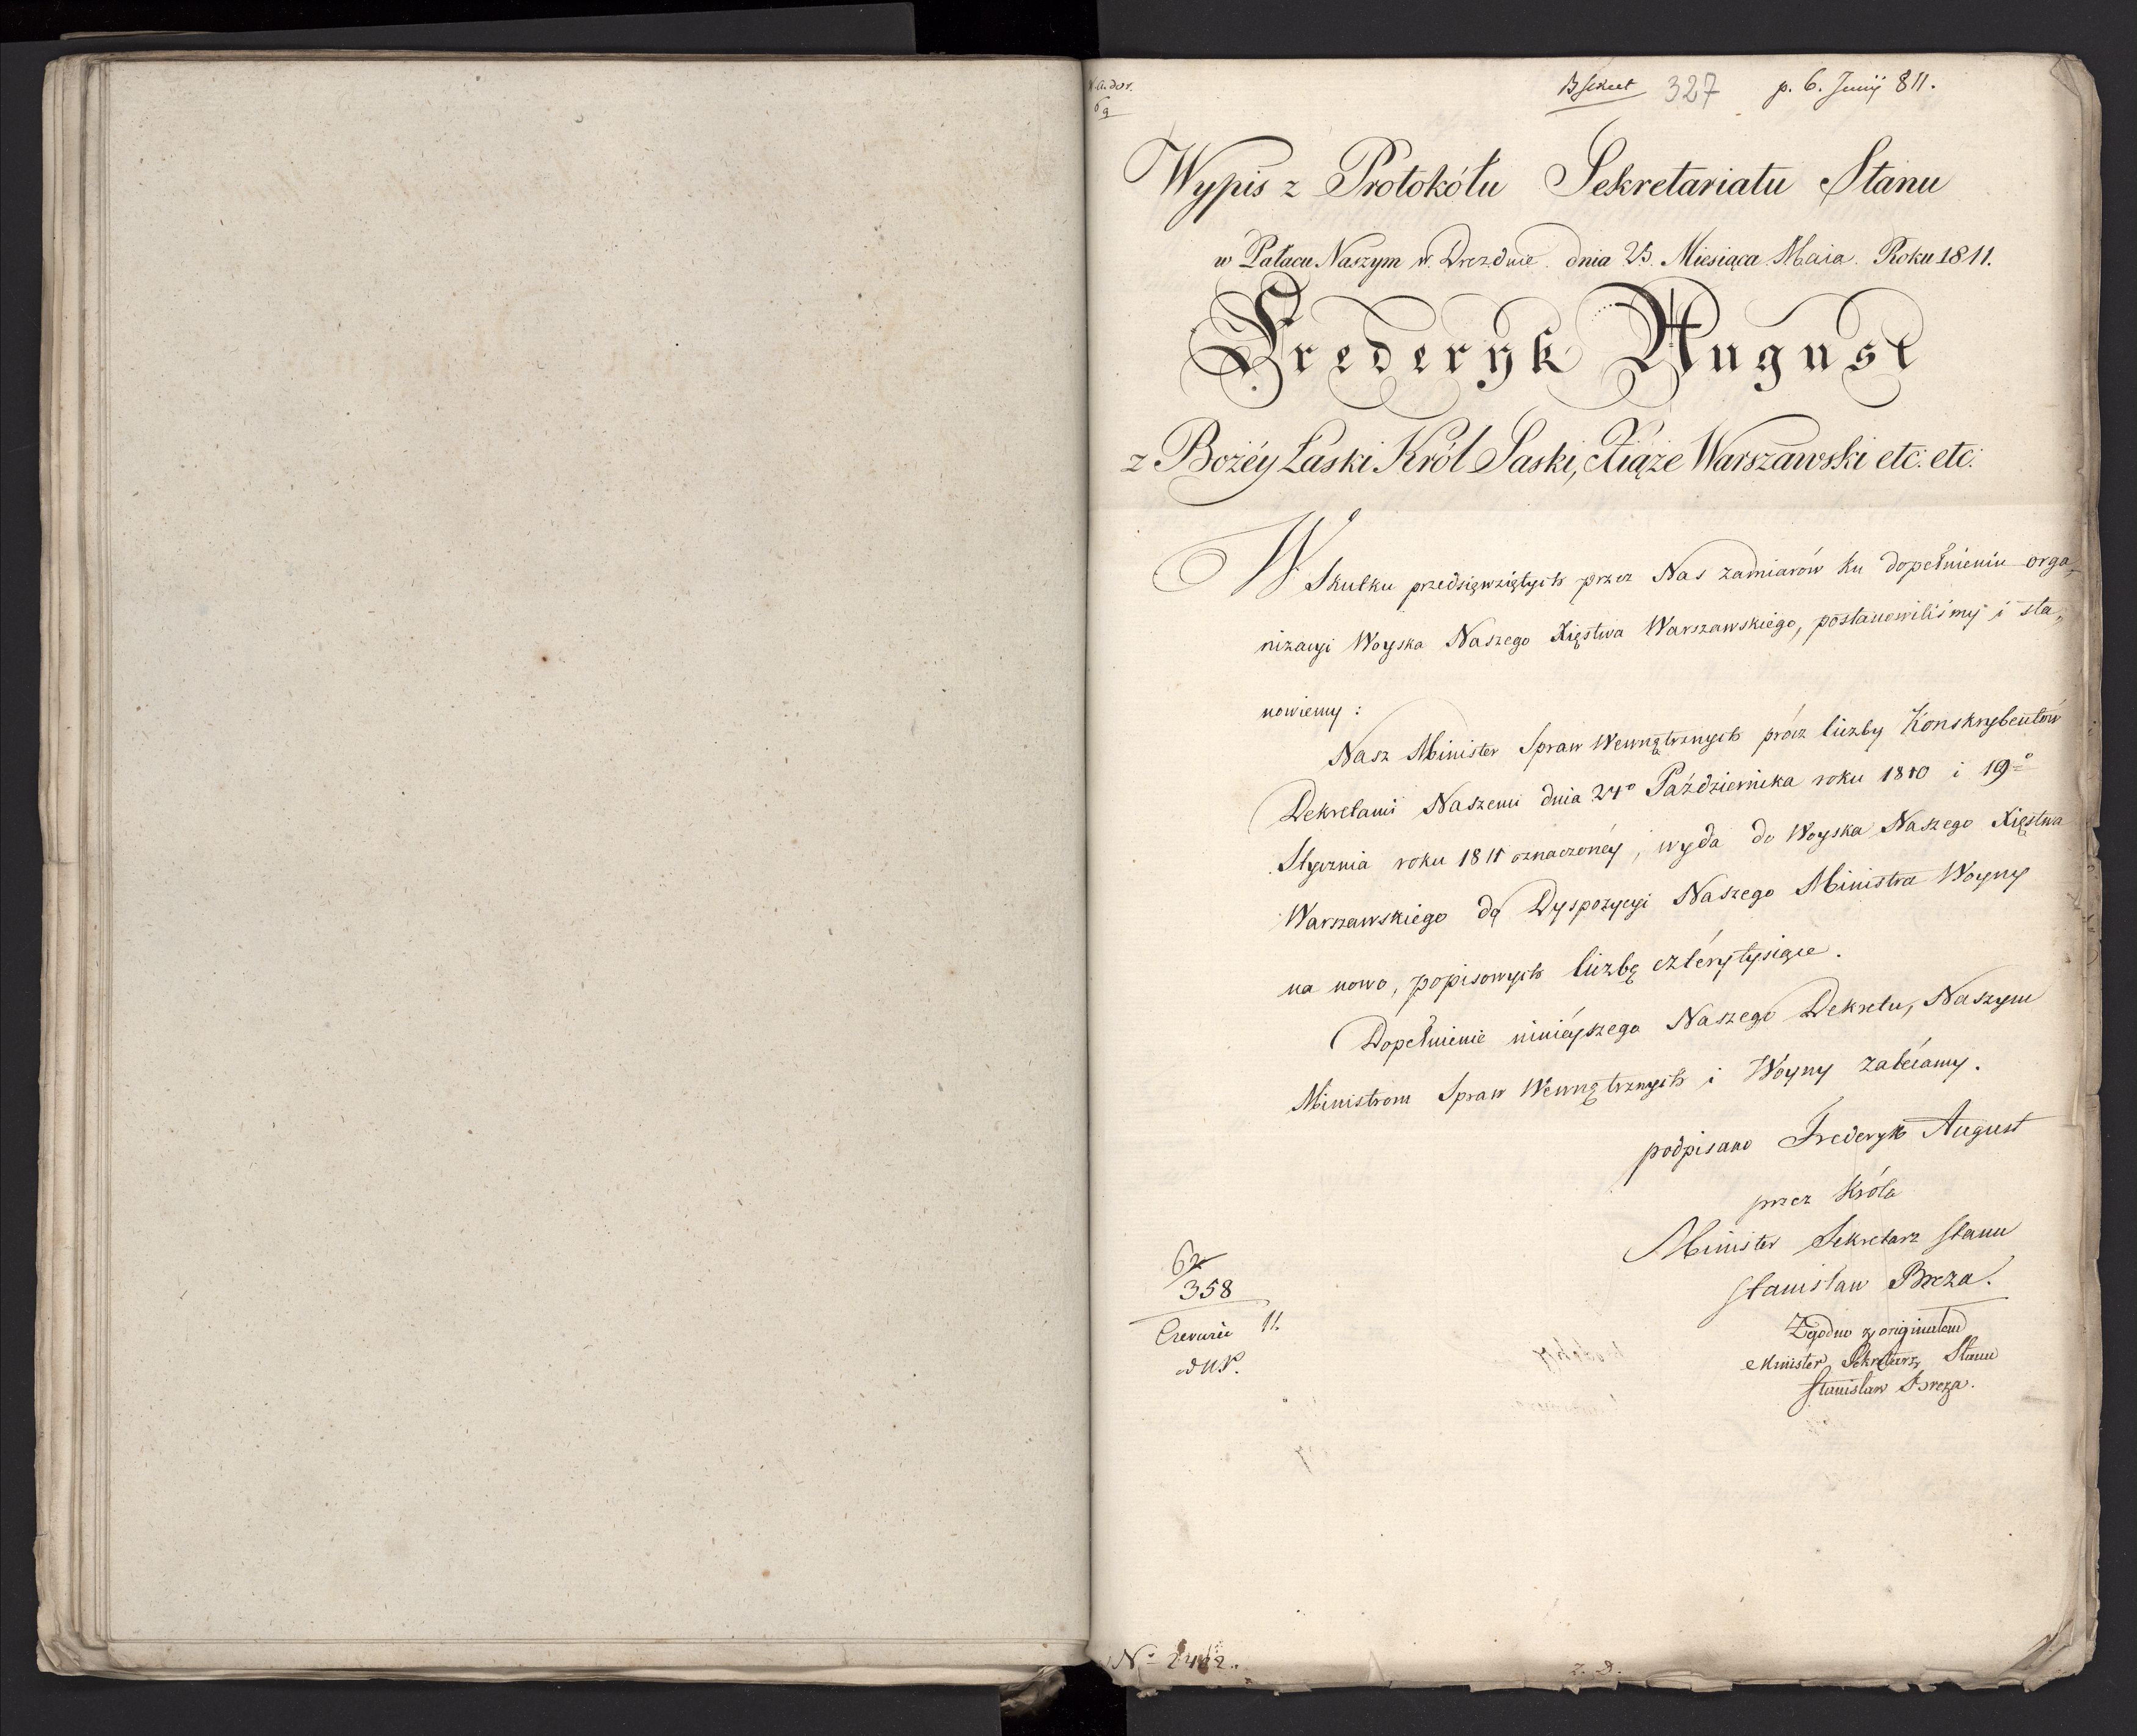 327 p. 6. Junij 811.
Wypis z Protokółu Sekretariatu Stanu
w Pałacu Naszym w Dreznie dnia 23. Miesiąca Maia Roku 1811.
Frederyk August
z Bożéy Łaski Król Saski, Xiąże Warszawski etc. etc.
W Skutku przedsięwziętych przez Nas zamiarów ku dopełnieniu orga„
nizacyi Woyska Naszego Xięstwa Warszawskiego, postanowiliśmy i sta„
nowiemy :
Nasz Minister Spraw Wewnętrznych prócz liczby Konskrybentów
Dekretami Naszemi dnia 24º Października roku 1810 i 19º
Stycznia roku 1811 oznaczonéy, wyda do Woyska Naszego Xięstwa
Warszawskiego do Dyspozycyi Naszego Ministra Woyny
na nowo, popisowych liczbę czterytysiące.
Dopełnienie ninieyszego Naszego Dekretu, Naszym
Ministrom Spraw Wewnętrznych i Woyny zalécamy.
podpisano Frederyk August
przez Króla
Minister Sekretarz Stanu
Stanisław Breza.
Zgodno z originałem
Minister Sekretarz Stanu
Stanisław Breza.
62
358
11.
Nº